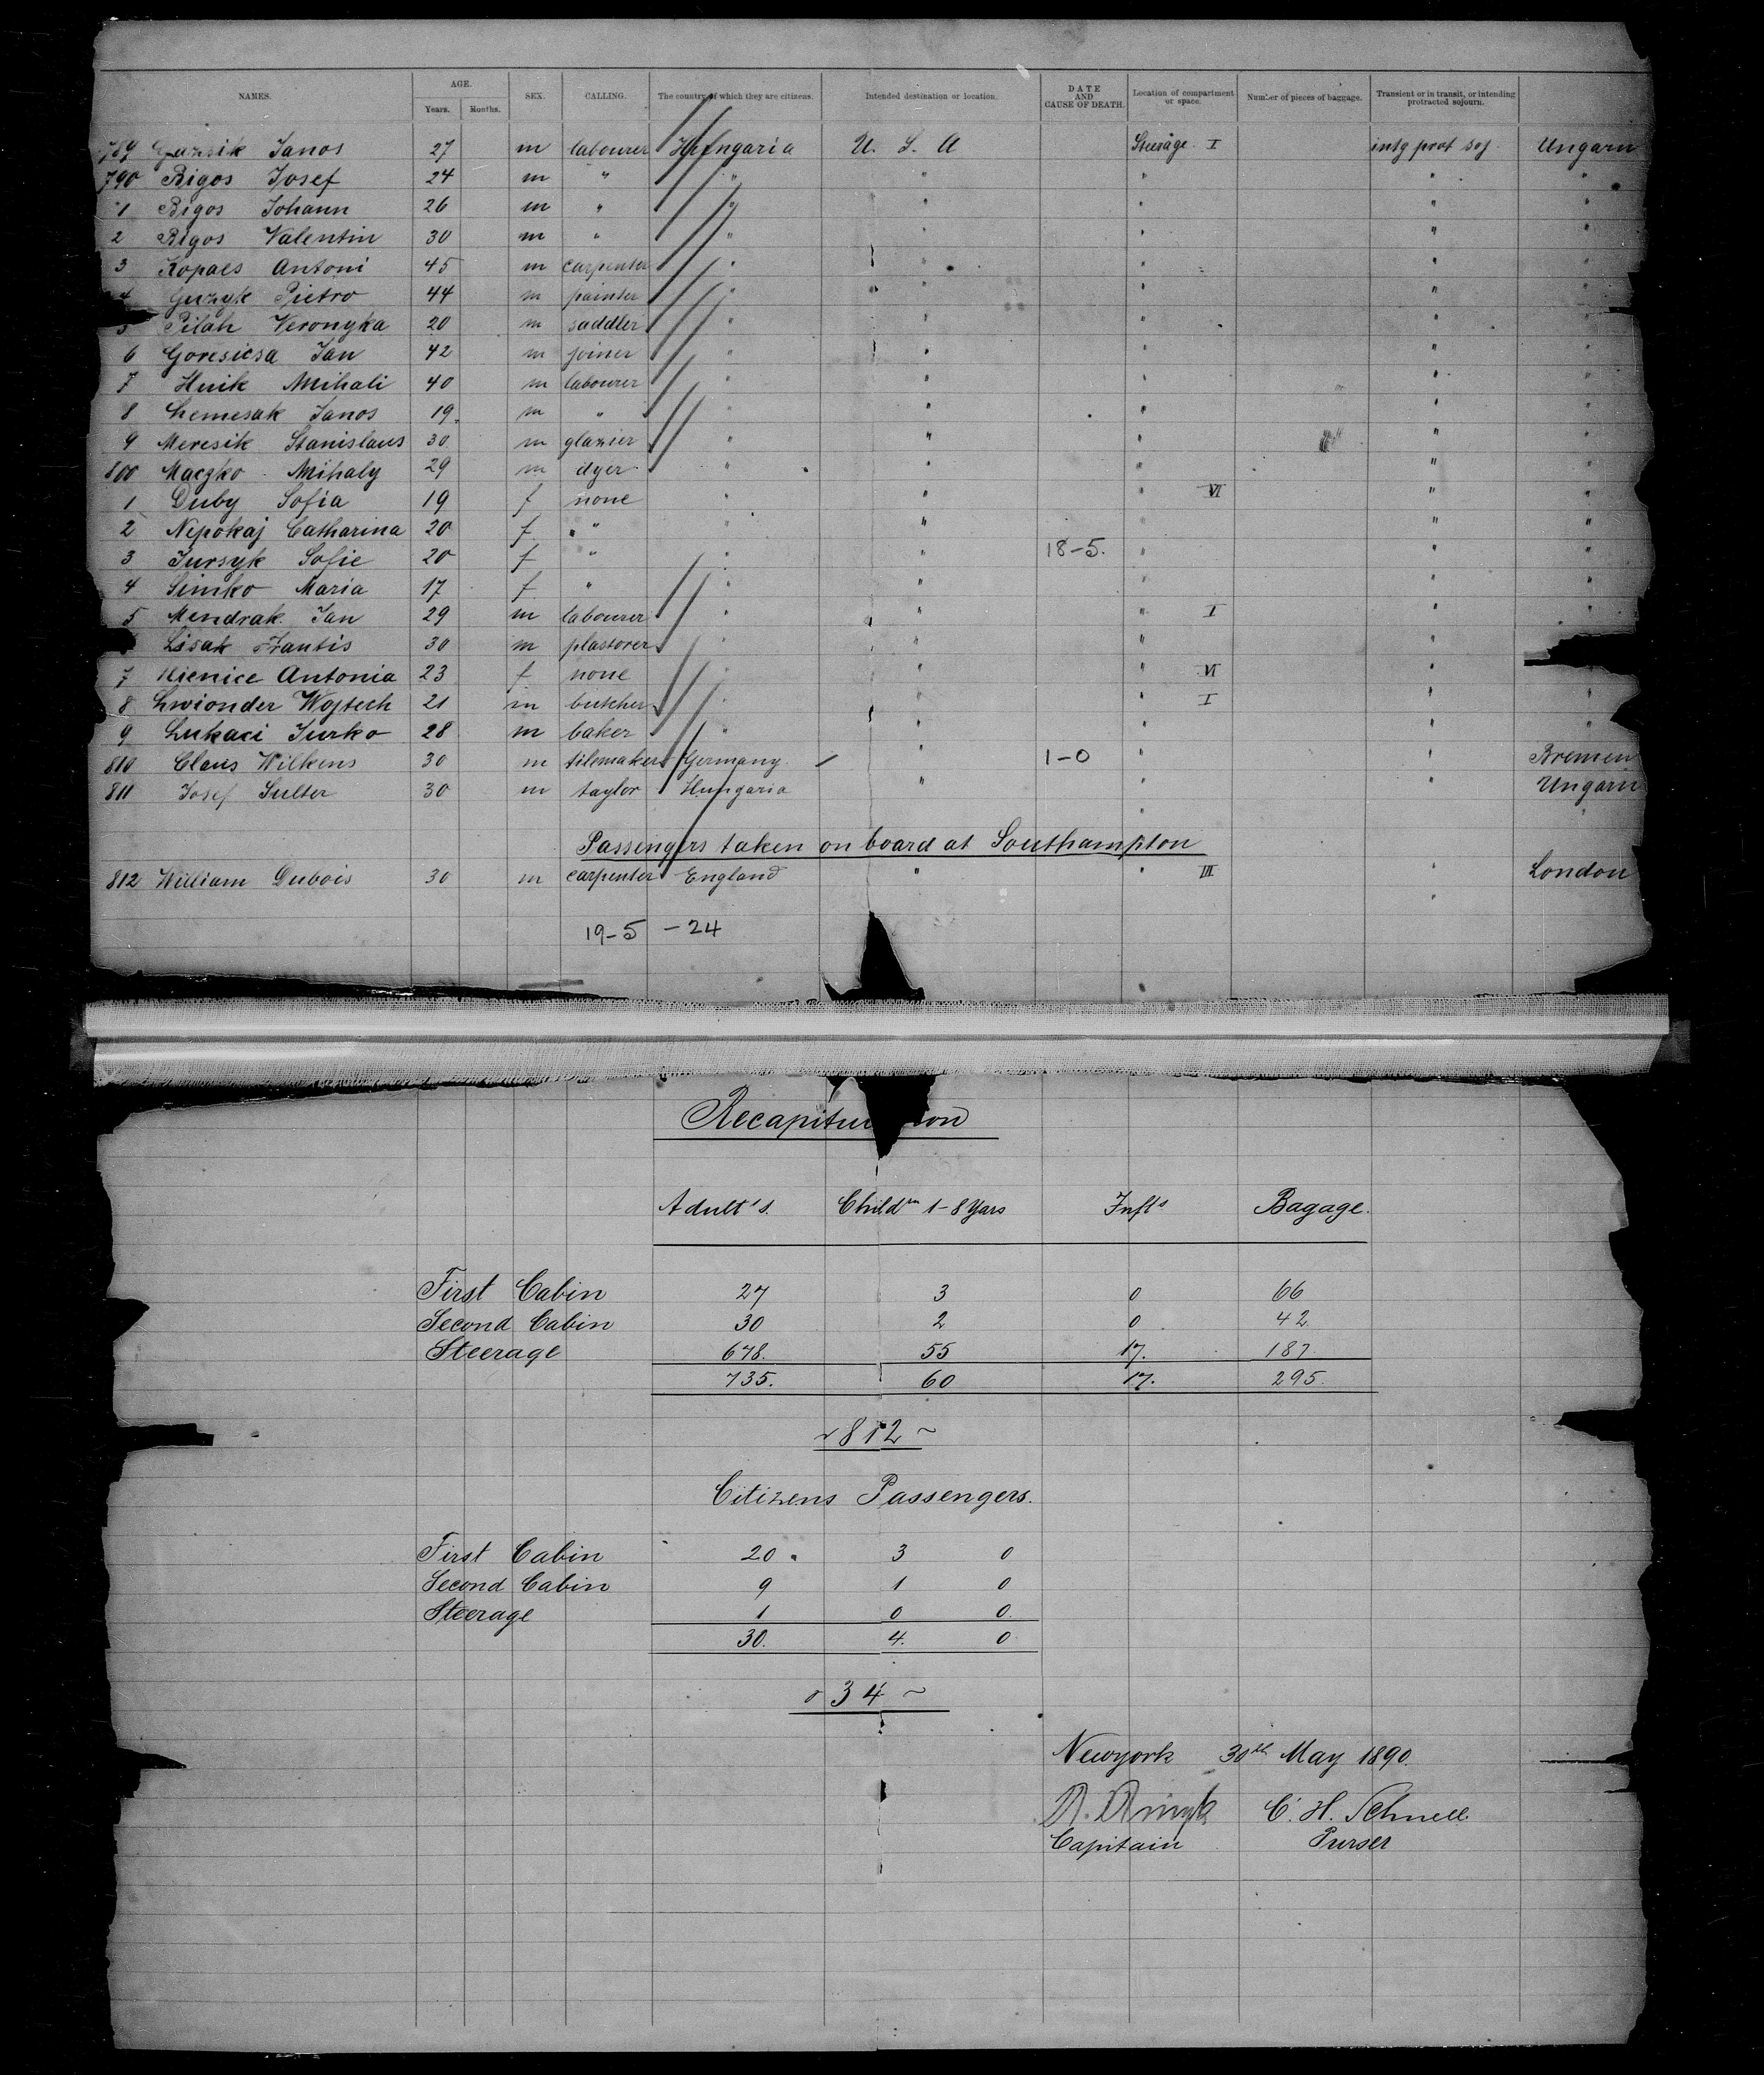 NAMES. AGE. Years. Months. SEX. CALLING. The country of which they are citizens. Intended destination or location. DATE AND CAUSE OF DEATH. Location of compartment or space. Number of pieces of baggage. Transient or in transit, or intending protracted sojourn.
789 Gazsik Janos 27 m labourer Hungaria U. S. A Steerage I intg prot soj Ungarn
790 Bigos Josef 24 m " " " " " "
1 Bigos Johann 26 m " " " " " "
2 Bigos Valentin 30 m " " " " " "
3 Kopacs Antoni 45 m carpenter " " " " "
4 Guzyk Pietro 44 m painter " " " " "
5 Pilah Veronyka 20 m saddler " " " " "
6 Goresicsa Jan 42 m joiner " " " " "
7 Huik Mihali 40 m labourer " " " " "
8 Semesak Janos 19 m " " " " " "
9 Meresik Stanislaus 30 m glazier " " " " "
800 Maczko Mihaly 29 m dyer " " " " "
1 Duby Sofia 19 f none " " " VI " "
2 Nepokaj Catharina 20 f " " " " " "
3 Jursyk Sofie 20 f " " " 18-5. " " "
4 Simko Maria 17 f " " " " " "
5 Mendrak Jan 29 m labourer " " " I " "
Lisak Frantis 30 m plastorer " " " "
7 Nienice Antonia 23 f none " " " VI " "
8 Swionder Wojtech 21 m butcher " " I " "
9 Lukaci Jurko 28 m baker " " " "
810 Claus Wilkens 30 m tilemaker Germany " 1-0 " " Bremen
811 Josef Sulter 30 m taylor Hungaria " " " Ungarn
Passengers taken on board at Southampton
812 William Dubois 30 m carpenter England " " III " London
19-5 - 24
Recapitu on
Adult's. Childrn 1-8 Yars Infts Bagage.
First Cabin 27 3 0 66
Second Cabin 30 2 0 42
Steerage 678. 55 17. 187
735. 60 17. 295.
812 ~
Citizens Passengers.
First Cabin 20 3 0
Second Cabin 9 1 0
Steerage 1 0 0.
30. 4. 0
34 ~
Newyork 30th May 1890.
C. H. Schnell
Capitain Purser